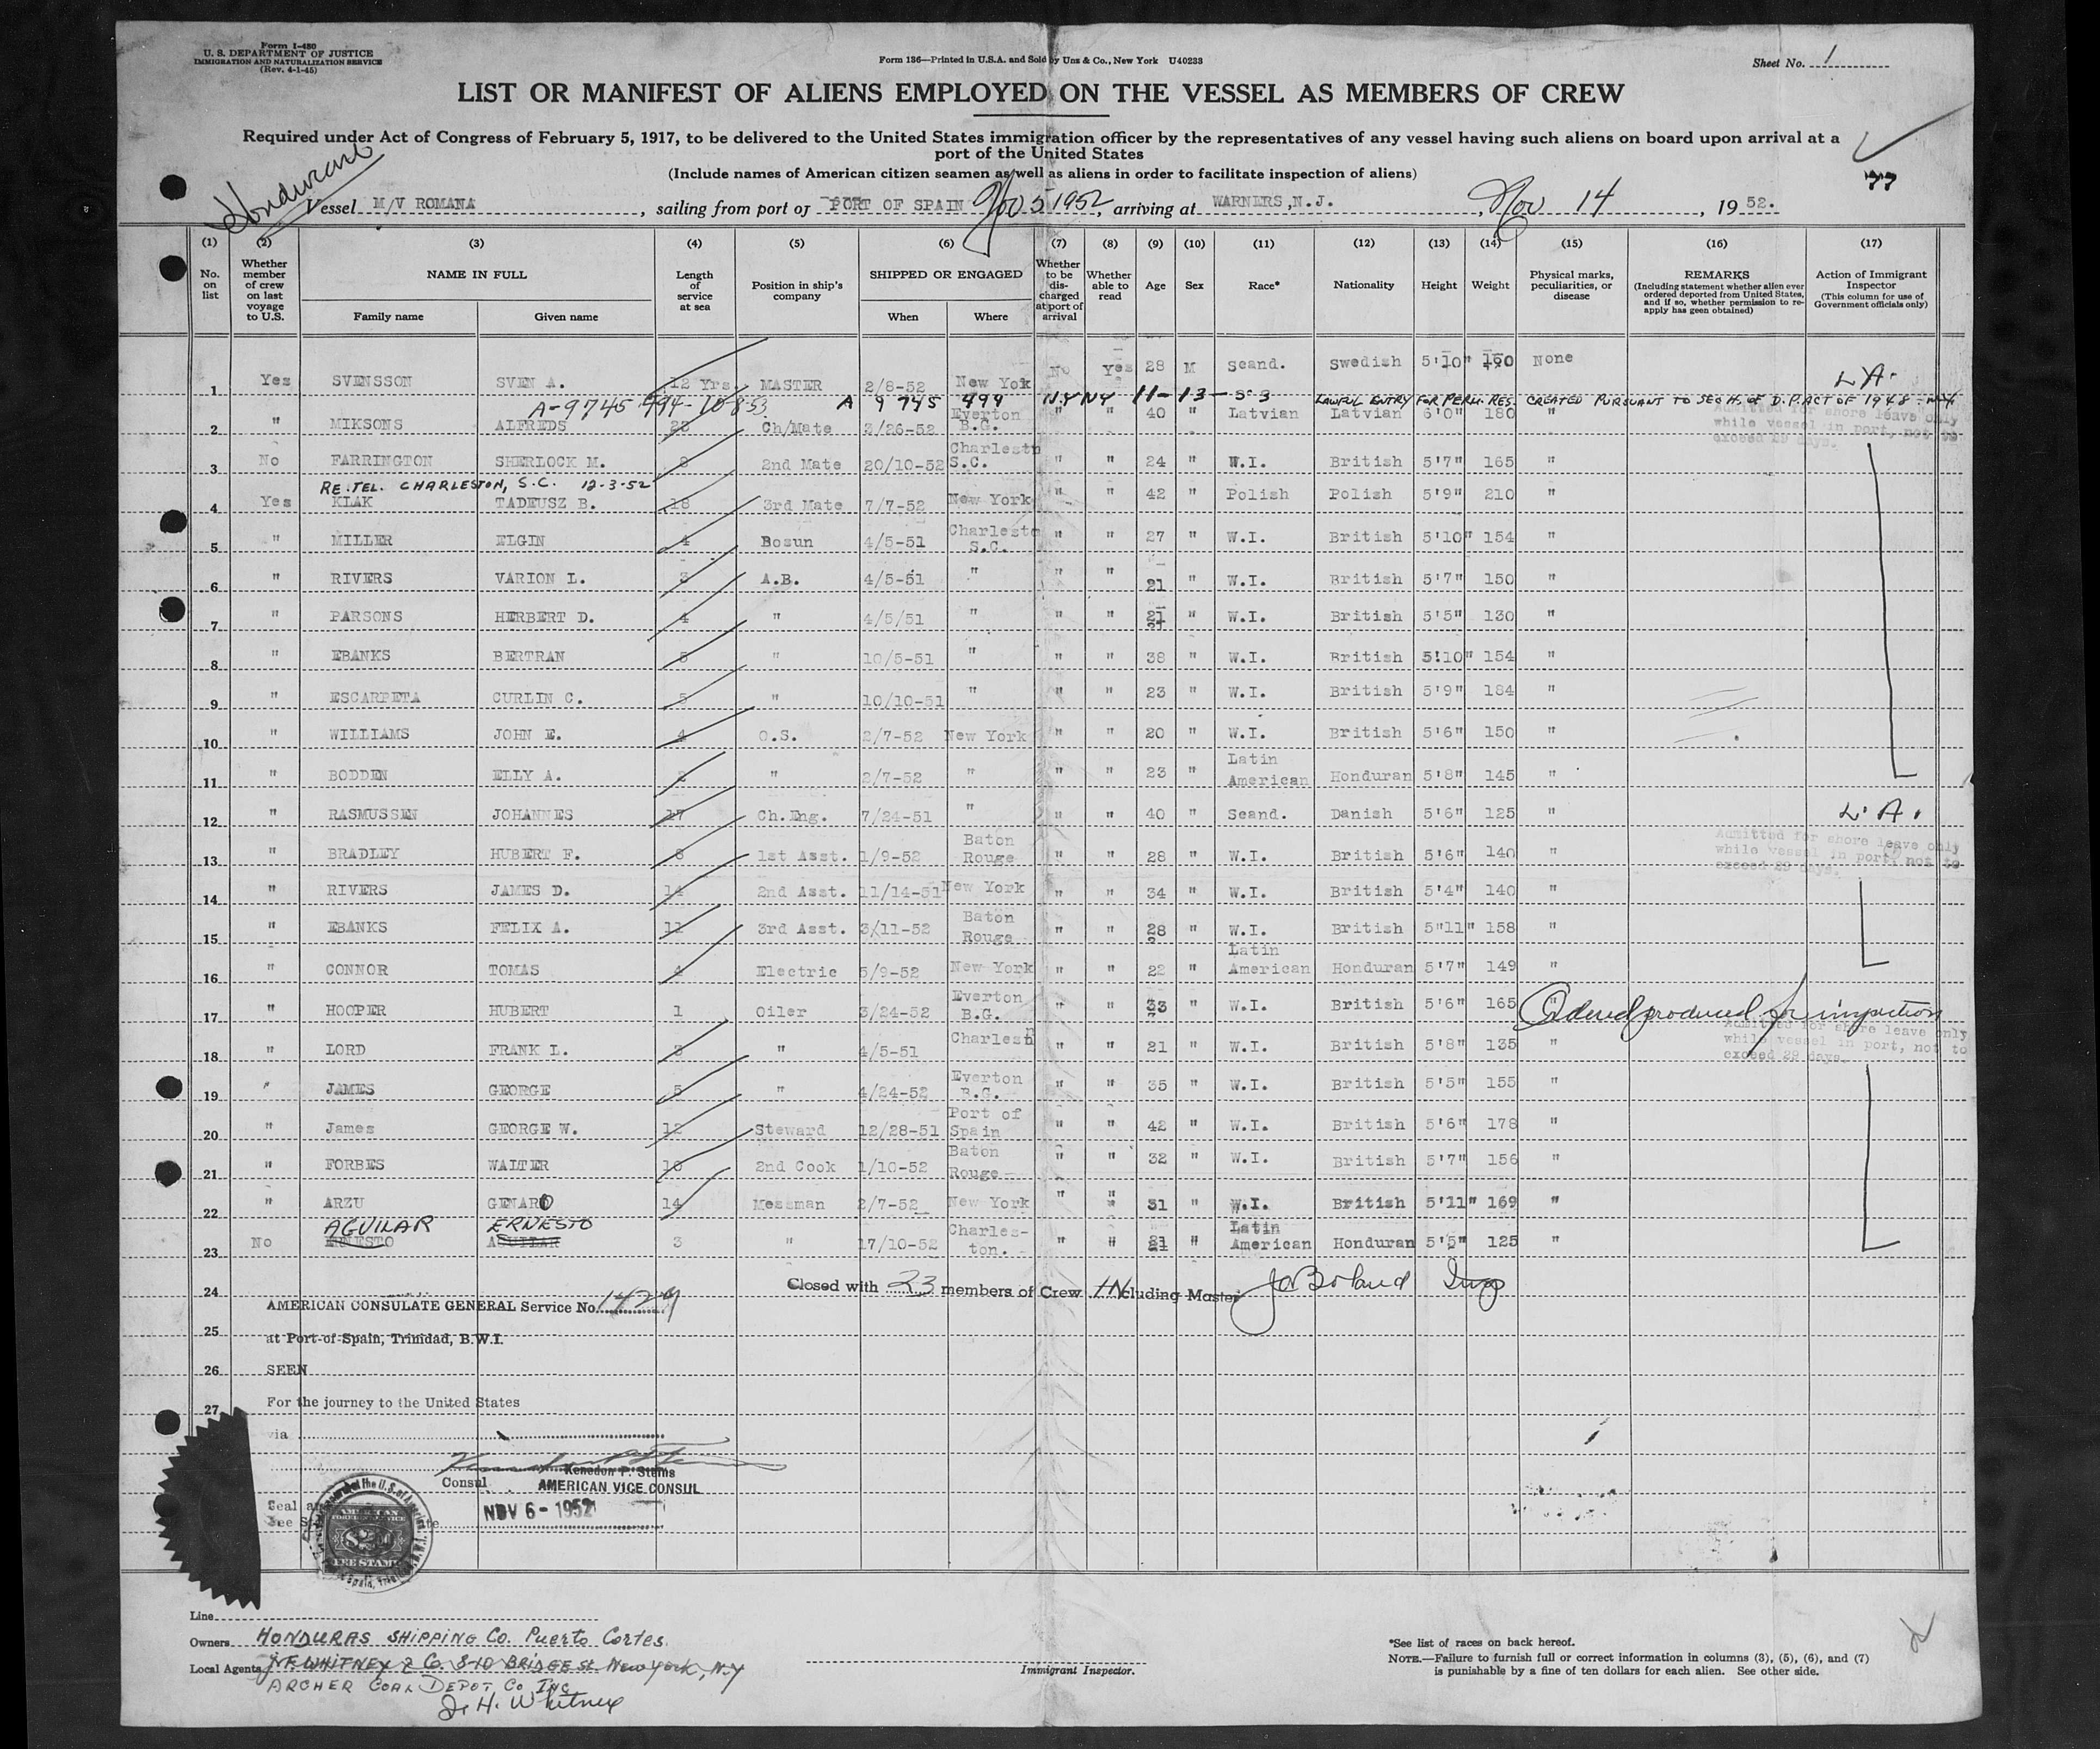 Form I-480
U. S. DEPARTMENT OF JUSTICE
IMMIGRATION AND NATURALIZATION SERVICE
(Rev. 4-1-45)
Form 136—Printed in U.S.A. and Sold by Unz & Co., New York U40233
Sheet No. 1
LIST OR MANIFEST OF ALIENS EMPLOYED ON THE VESSEL AS MEMBERS OF CREW
Required under Act of Congress of February 5, 1917, to be delivered to the United States immigration officer by the representatives of any vessel having such aliens on board upon arrival at a
port of the United States
(Include names of American citizen seamen as well as aliens in order to facilitate inspection of aliens)
77
Honduran
Vessel M/V ROMANA, sailing from port of PORT OF SPAIN Nov 5 1952, arriving at WARNERS, N.J., Nov 14, 1952.
(1) (2) (3) (4) (5) (6) (7) (8) (9) (10) (11) (12) (13) (14) (15) (16) (17)
No. on list
Whether member of crew on last voyage to U.S.
NAME IN FULL
Family name
Given name
Length of service at sea
Position in ship's company
SHIPPED OR ENGAGED
When
Where
Whether to be discharged at port of arrival
Whether able to read
Age
Sex
Race*
Nationality
Height
Weight
Physical marks, peculiarities, or disease
REMARKS
(Including statement whether alien ever ordered deported from United States, and if so, whether permission to re-apply has geen obtained)
Action of Immigrant Inspector
(This column for use of Government officials only)
1 Yes SVENSSON SVEN A. 12 Yrs. MASTER 2/8-52 New Yok No Yes 28 M Scand. Swedish 5'10" 190 None L.A.
A-9745 494-10-8-53 A 9 745 494 NY NY 11-13-53 LAWFUL ENTRY FOR PERM. RES. CREATED PURSUANT TO SEC 4. OF D.P. ACT OF 1948
2 " MIKSONS ALFREDS 23 Ch/Mate 3/26-52 Everton B.G. 40 " Latvian Latvian 6'0" 180 "
Admitted for shore leave only
while vessel in port, not to
exceed 29 days.
3 No FARRINGTON SHERLOCK M. 8 2nd Mate 20/10-52 Charlestn S.C. " " 24 " W.I. British 5'7" 165 "
RE.TEL. CHARLESTON, S.C. 12-3-52
4 Yes KLAK TADEUSZ B. 18 3rd Mate 7/7-52 New York " " 42 " Polish Polish 5'9" 210 "
5 " MILLER ELGIN 4 Bosun 4/5-51 Charlestn S.C. " " 27 " W.I. British 5'10" 154 "
6 " RIVERS VARION L. 3 A.B. 4/5-51 " " " 21 " W.I. British 5'7" 150 "
7 " PARSONS HERBERT D. 4 " 4/5/51 " " " 21 " W.I. British 5'5" 130 "
8 " EBANKS BERTRAN 5 " 10/5-51 " " " 38 " W.I. British 5'10" 154 "
9 " ESCARPETA CURLIN C. 5 " 10/10-51 " " " 23 " W.I. British 5'9" 184 "
10 " WILLIAMS JOHN E. 4 O.S. 2/7-52 New York " " 20 " W.I. British 5'6" 150 "
11 " BODDEN ELLY A. 2 " 2/7-52 " " " 23 " Latin American Honduran 5'8" 145 "
12 " RASMUSSEN JOHANNES 17 Ch.Eng. 7/24-51 " " " 40 " Scand. Danish 5'6" 125 " L.A.
13 " BRADLEY HUBERT F. 8 1st Asst. 1/9-52 Baton Rouge " " 28 " W.I. British 5'6" 140 "
Admitted for shore leave only
while vessel in port, not to
exceed 29 days.
14 " RIVERS JAMES D. 14 2nd Asst. 11/14-51 New York " " 34 " W.I. British 5'4" 140 "
15 " EBANKS FELIX A. 11 3rd Asst. 3/11-52 Baton Rouge " " 28 " W.I. British 5"11" 158 "
16 " CONNOR TOMAS 4 Electric 5/9-52 New York " " 22 " Latin American Honduran 5'7" 149 "
17 " HOOPER HUBERT 1 Oiler 3/24-52 Everton B.G. " " 33 " W.I. British 5'6" 165 " Ordered produced for inspection
18 " LORD FRANK L. 3 " 4/5-51 Charlestn " " 21 " W.I. British 5'8" 135 "
Admitted for shore leave only
while vessel in port, not to
exceed 29 days.
19 " JAMES GEORGE 5 " 4/24-52 Everton B.G. " " 35 " W.I. British 5'5" 155 "
20 " James GEORGE W. 12 Steward 12/28-51 Port of Spain " " 42 " W.I. British 5'6" 178 "
21 " FORBES WALTER 10 2nd Cook 1/10-52 Baton Rouge " " 32 " W.I. British 5'7" 156 "
22 " ARZU GENARO 14 Messman 2/7-52 New York " " 31 " W.I. British 5'11" 169 "
AGUILAR ERNESTO
23 No ERNESTO AGUILAR 3 " 17/10-52 Charles-ton. " " 21 " Latin American Honduran 5'5" 125 "
24
Closed with 23 members of Crew INcluding Master JC Boland Insp
AMERICAN CONSULATE GENERAL Service No. 1429
25
at Port-of-Spain, Trinidad, B.W.I.
26
SEEN
For the journey to the United States
27
via
Kenedon P. Steins
Consul
AMERICAN VICE CONSUL
NOV 6 - 1952
Seal
AMERICAN
FOREIGN SERVICE
FEE STAMP
Line
Owners HONDURAS SHIPPING Co. Puerto Cortes
Local Agents J.F. WHITNEY & Co. 8-10 BRIDGE St. New York, N.Y
ARCHER COAL DEPOT Co INC
J. H. Whitney
Immigrant Inspector.
*See list of races on back hereof.
NOTE.—Failure to furnish full or correct information in columns (3), (5), (6), and (7)
is punishable by a fine of ten dollars for each alien. See other side.